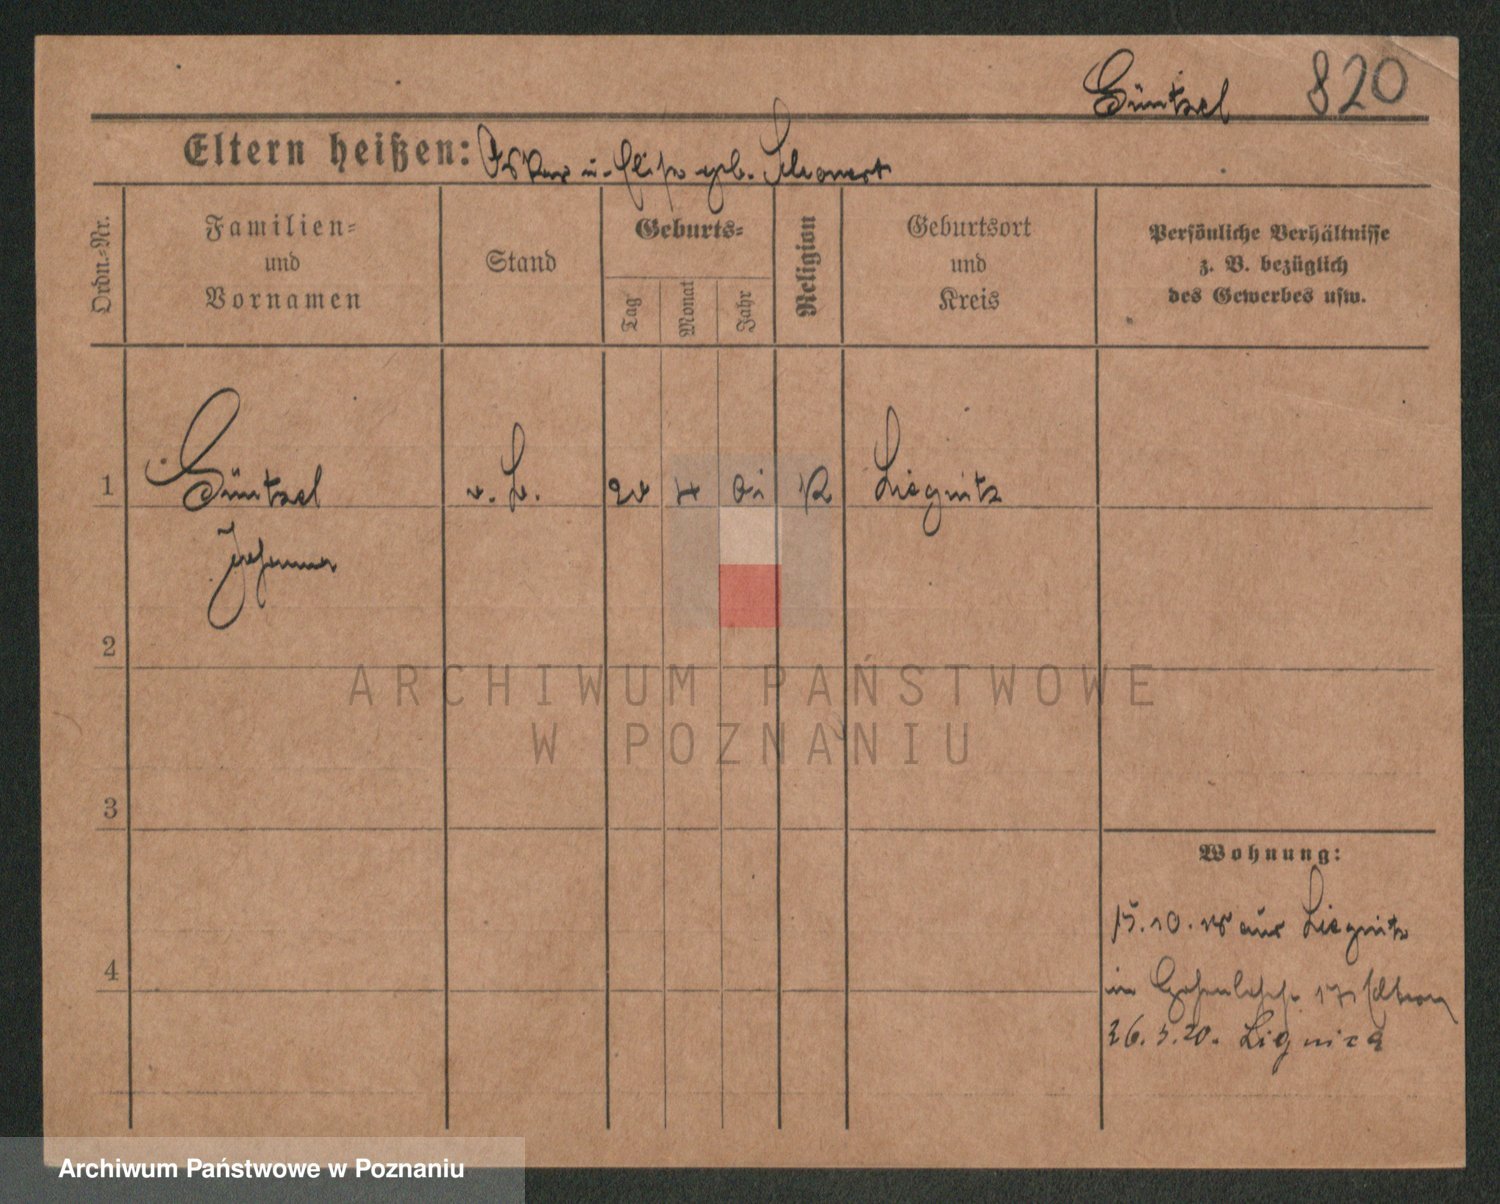 Güntzel 820
Eltern heißen: Oskar u. Elise geb. Schonert
Ordn.-Nr.
Familien-
und
Vornamen
Stand
Geburts-
Tag
Monat
Jahr
Religion
Geburtsort
und
Kreis
Persönliche Verhältnisse
z. B. bezüglich
des Gewerbes usw.
1 Güntzel 4 Liegnitz
Johanna
2
3
4
Wohnung:
15.10.18 aus Liegnitz
in
26.5.20. Lignica
ARCHIWUM PAŃSTWOWE
W POZNANIU
Archiwum Państwowe w Poznaniu